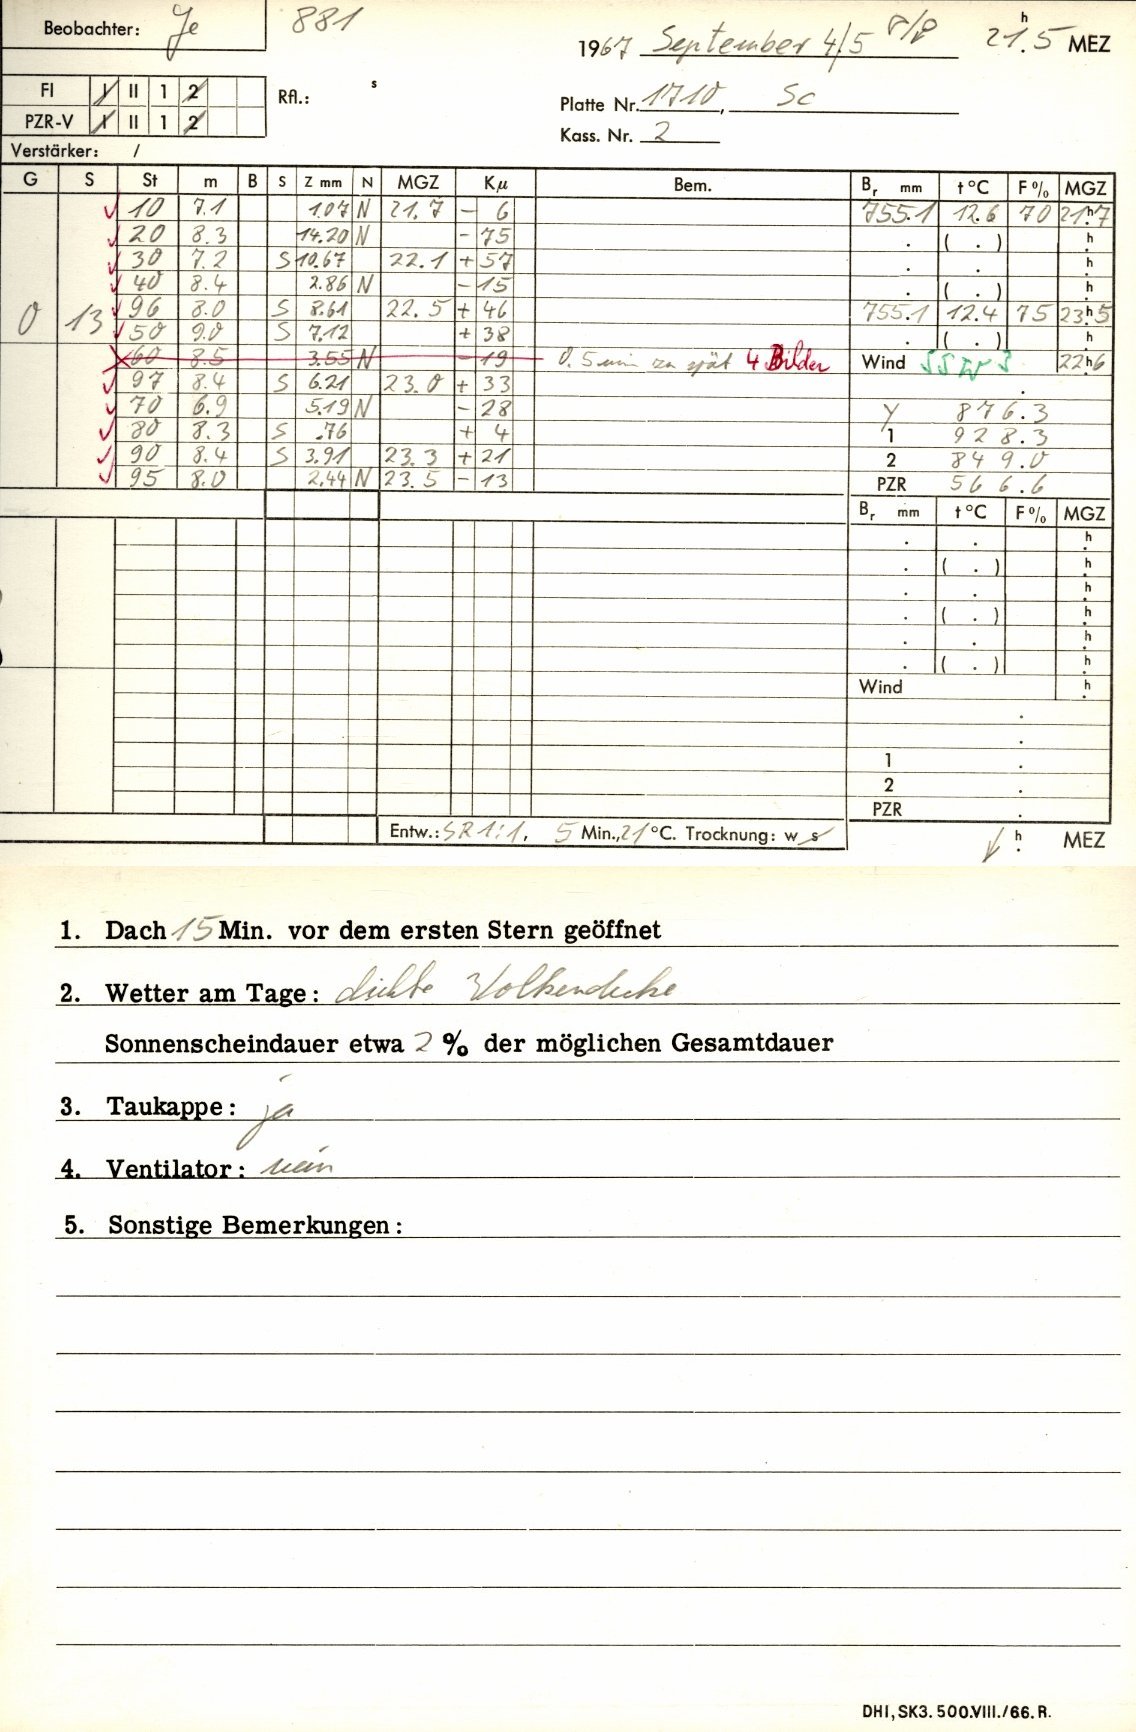 Beobachter: Je 881
1967 September 4/5 21.5 h MEZ
FI I II 1 2 Rfl.: s
PZR-V I II 1 2
Platte Nr. 1710, Sc
Kass. Nr. 2
Verstärker: /
G S St m B S Z mm N MGZ Kμ Bem. Br mm t °C F % MGZ
10 7.1 1.07 N 21.7 - 6 755.1 12.6 70 21h7
20 8.3 14.20 N - 75 . ( . ) h
30 7.2 S 10.67 22.1 + 57 . . h
40 8.4 2.86 N - 15 . ( . ) h
0 13 96 8.0 S 8.61 22.5 + 46 755.1 12.4 75 23h5
50 9.0 S 7.12 + 38 . ( . ) h
60 8.5 3.55 N - 19 0.5 min zu spät 4 Bilder Wind SSW 3 22h6
97 8.4 S 6.21 23.0 + 33 .
70 6.9 5.19 N - 28 y 876.3
80 8.3 S .76 + 4 1 928.3
90 8.4 S 3.91 23.3 + 21 2 849.0
95 8.0 2.44 N 23.5 - 13 PZR 566.6
Br mm t °C F % MGZ
. . h
. ( . ) h
. . h
. ( . ) h
. . h
. ( . ) h
Wind h
.
.
1 .
2 .
PZR .
Entw.: SR 1:1, 5 Min., 21 °C. Trocknung: w s
h MEZ
1. Dach 15 Min. vor dem ersten Stern geöffnet
2. Wetter am Tage: dichte Wolkendecke
Sonnenscheindauer etwa 2 % der möglichen Gesamtdauer
3. Taukappe: ja
4. Ventilator: nein
5. Sonstige Bemerkungen:
DHI, SK3. 500.VIII./66. R.